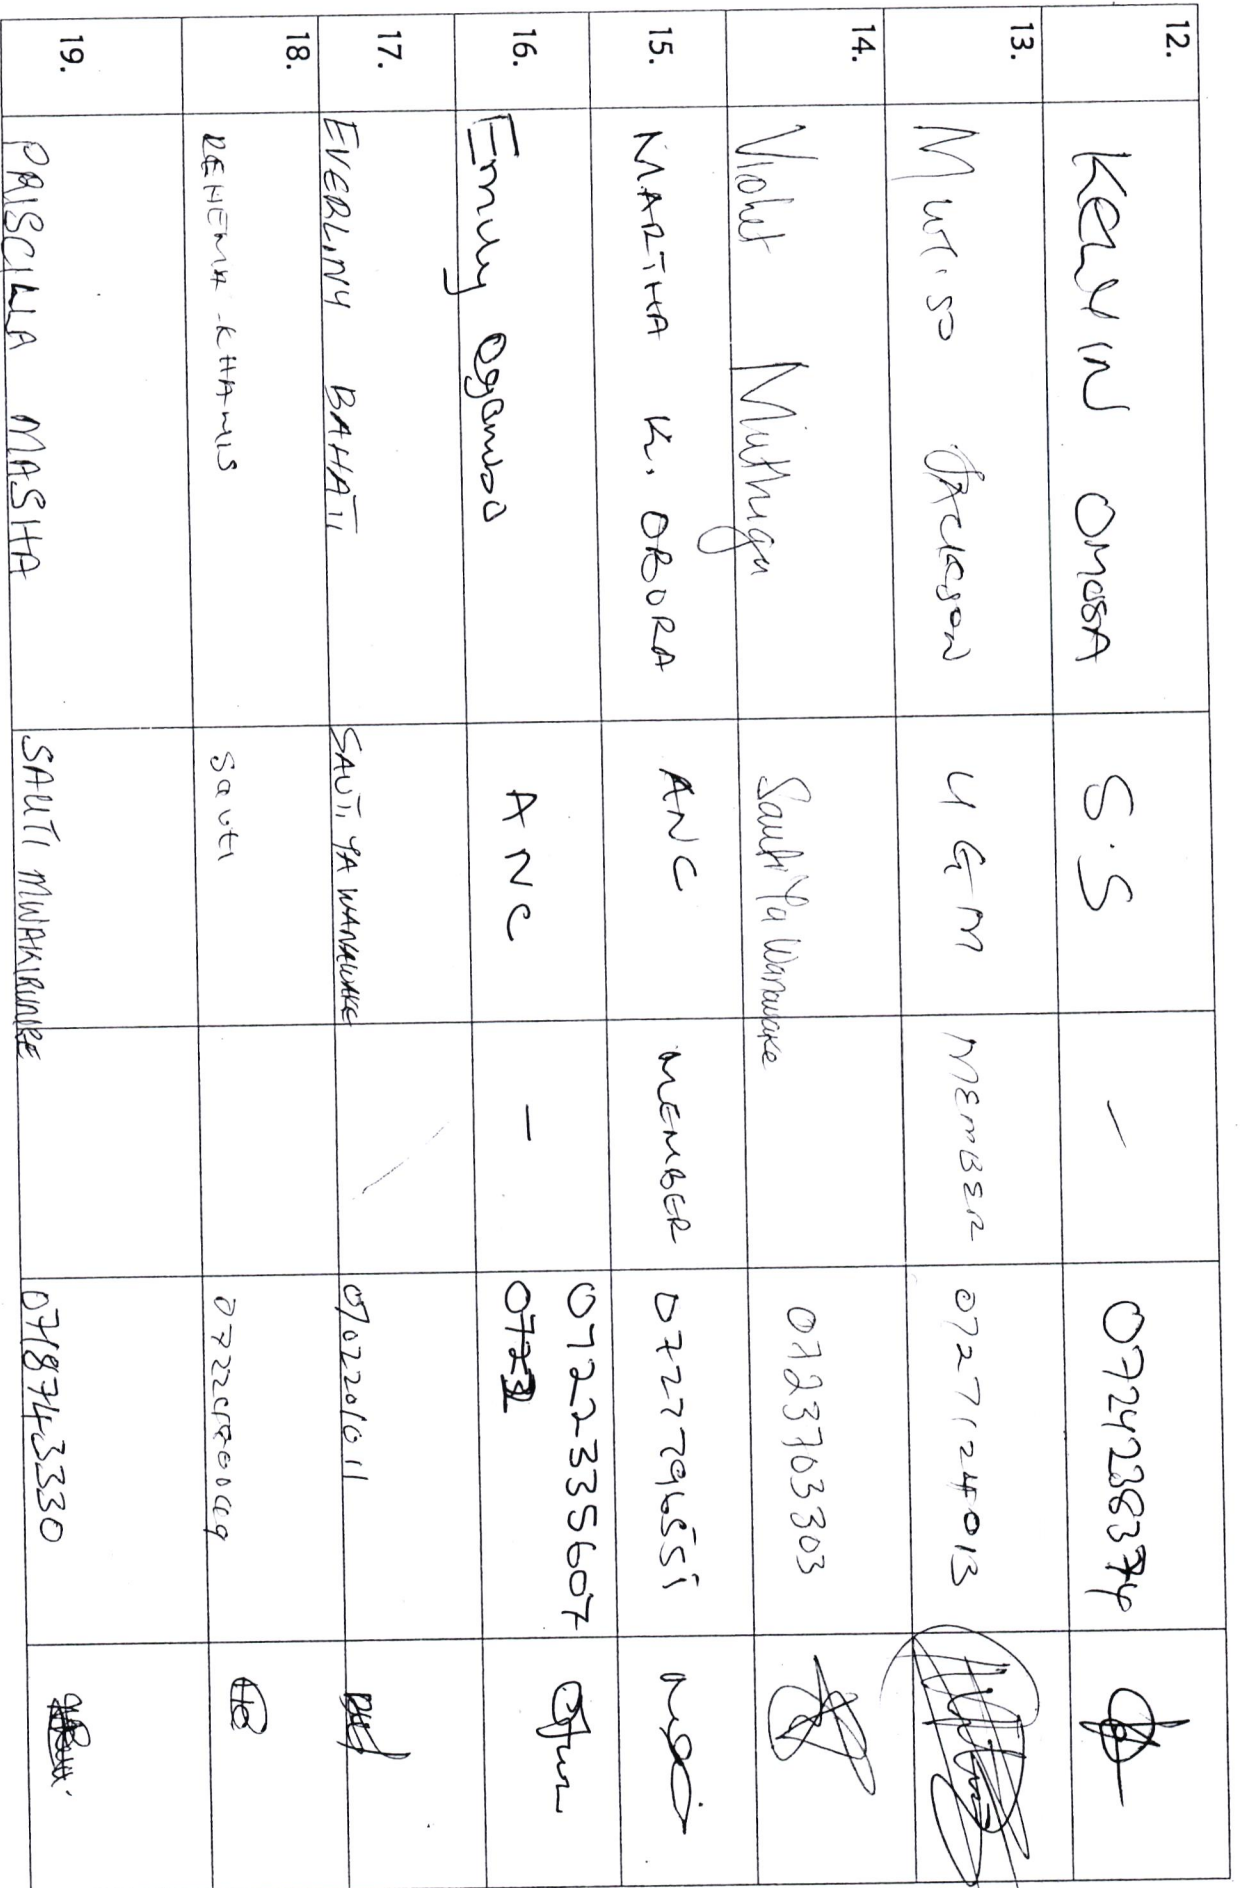 12. KELVIN OMOSA S.S - 0724238374
13. MUTISO JACKSON UGM MEMBER 0727124013
14. Violet Muthiga Sauti Ya Wanawake 0723703303
15. MARTHA K. OBORA ANC MEMBER 0727796551
16. Emily Ogambo ANC - 0722335607
0723
17. EVERLINY BAHATI SAUTI YA WANAWAKE 0702201011
18. REHEMA KHAMIS Sauti
19. PRISCILLA MASHA SAUTI MWAKIRUNGE 0718743330